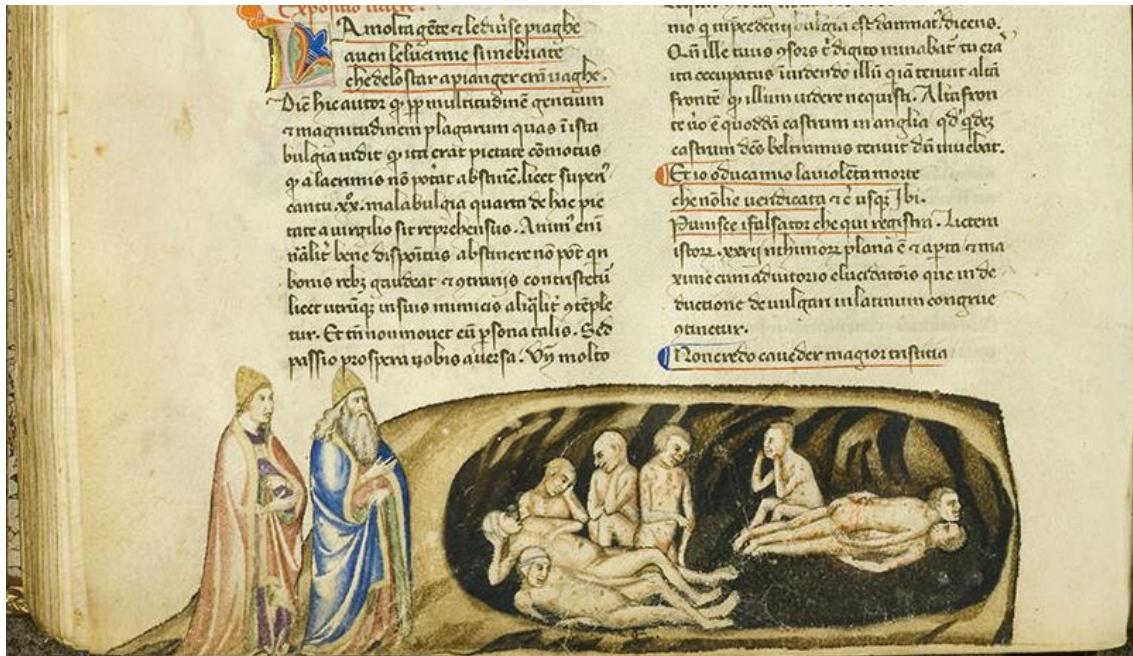 Expositio lit[t]ere.
La molta gẽte ⁊ le diũse piaghe
aven le luci mie si inebriate
che delo star a pianger erãn uaghe.
Diẽ hic autor ꝙ ꝓp multitudinẽ gentium
⁊ magnitudinem plagarum quas ĩ ista
bulgia uidit ꝙ ita erat pietate cõmotus
ꝙ a lacrimis nõ potãt abstinẽ. licet superi⁹
cantu .xx. malabulgia quarta de hac pie
tate a uirgilio sit rep̃rehensus. Anim⁹ eni
nãlit̃ bene dispõitus abstinere nõ põt qn
bonis rebꝫ gaudeat ⁊ ꝯtrariis contristetũ
licet utrũqꝫ in suis inimicis aliq̃lit̃ ꝯtẽple
tur. Et tñ nou mouet eũ ꝑsona talis. Sed
passio prospera uobis aũersa. Vñ molto
mo q̃ in p̃cedenti bulgia est damnat⁹ dicens.
Qñ ille tuus ꝯsors ẽ digito minabat̃ tu erã
ita occupatus ĩ uidendo illũ q̃ iã tenuit altã
frontẽ ꝙ illum uidere nequisti. Alta fron
te ũo ẽ quoddã castrum in anglia qd̃ q̃deꝫ
castrum dẽs beltramus tenuit dũ uiuebat.
Et io o duca mio la uiolẽnta morte
che nonli e uendicata ⁊ c̃ usqꝫ Ibi.
Punisce i falsator che qui registra. Lictera
istoꝝ .xxvij rithimoꝝ plana ẽ ⁊ apta ⁊ ma
xime cum aduitorio elucidatõis que in de
ductione de uulgari in latinum congrue
ꝯtinetur.
Non credo ca ueder magior tristitia